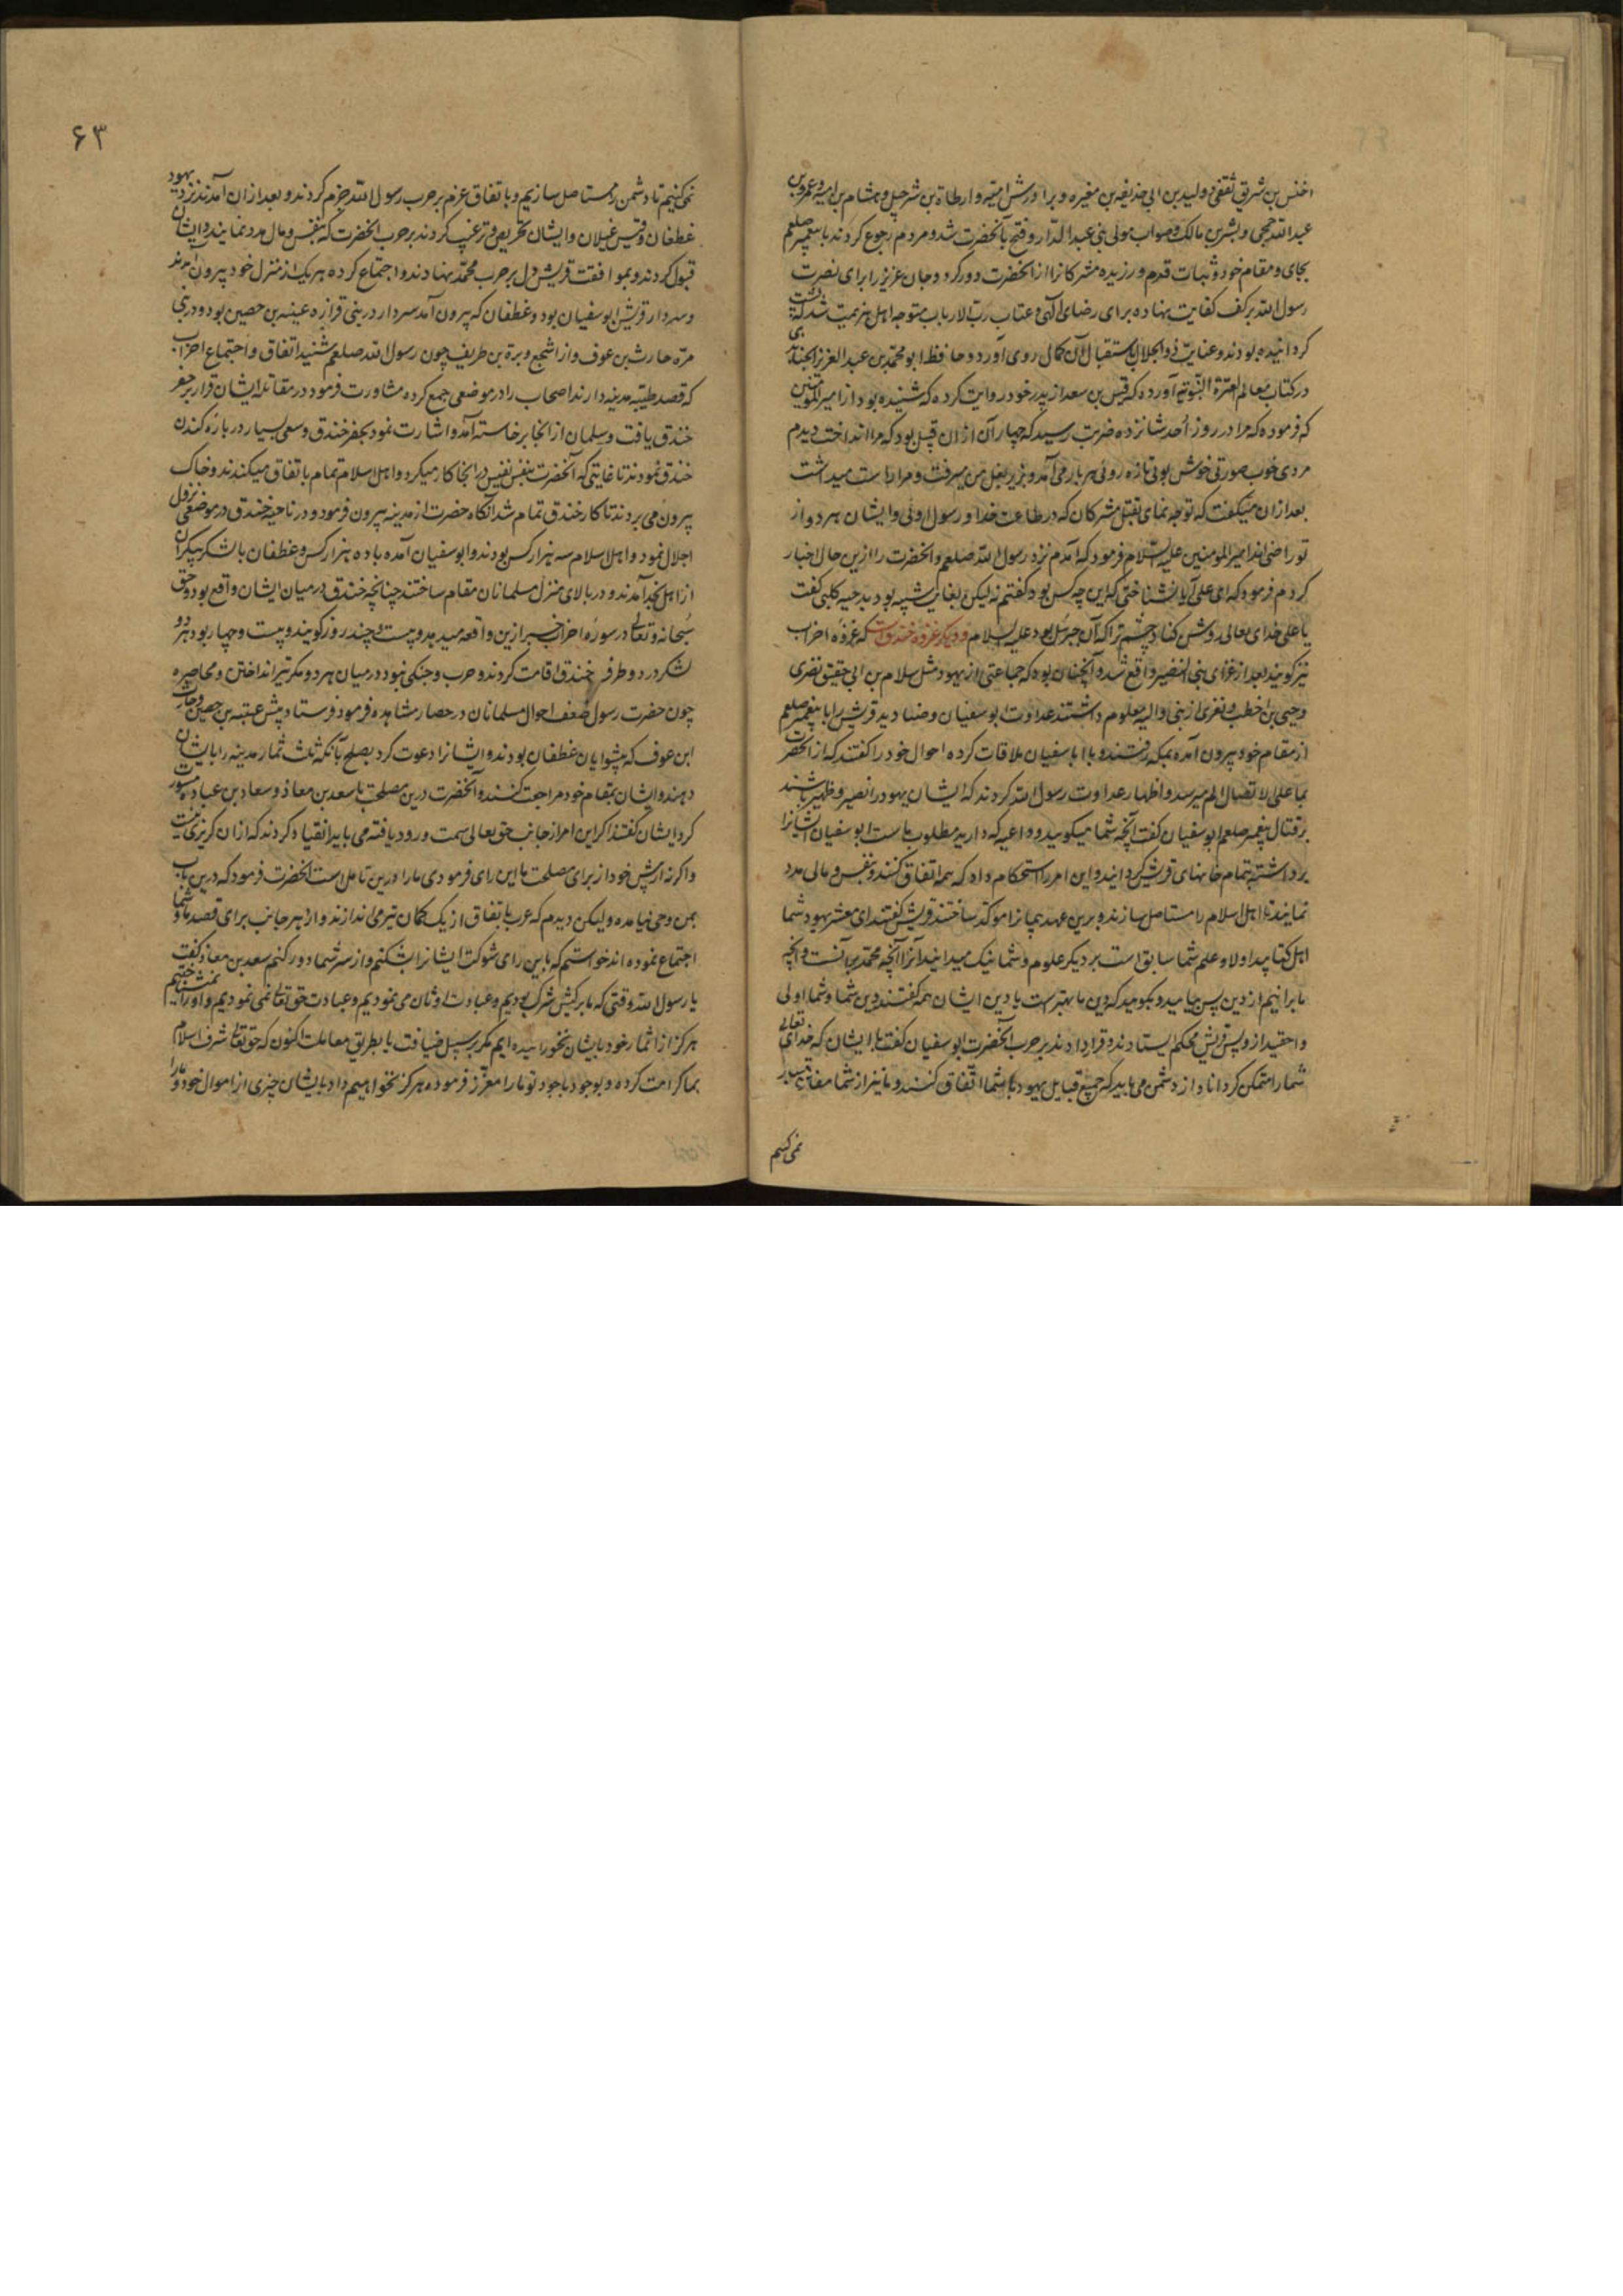 اخنس بن شریق ثقفی و ولید بن ابی حذیفه بن مغیره و برادرش امیه و ارطاة بن شرحبیل و هشام بن امیه و عمرو بن
عبد الله جمحی و بشر بن مالک و صواب مولی بنی عبد الدار و فتح بآنحضرت شد و مردم رجوع کردند با پیغمبر صلعم
بجای و مقام خود و ثبات قدم ورزیده مشرکانرا از آنحضرت دور کرد و جان عزیز را برای نصرت
رسول الله بر کف کفایت نهاده برای رضای الهی و عتاب رب الارباب متوجه اهل هزیمت شد که پشت
کردانیده بودند و عنایت ذو الجلال باستقبال آن کمال روی آورد و حافظ ابو محمد بن عبد العزیز الجنابذی
در کتاب معالم العترة النبویه آورده که قیس بن سعد از پدر خود روایت کرده که شنیده بود از امیر المومنین
که فرموده که مرا در روز احد شانزده ضربت رسید که چهار آن از ان قبیل بود که مرا انداخت دیدم
مردی خوب صورتی خوش بوئی تازه روئی هر بار می آمد و بزیر بغل من میرفت و مرا راست میداشت
بعد ازان میگفت که توجه نمای بقتل مشرکان که در طاعت خدا و رسول اوئی و ایشان هر دو از
تو راضی اند امیر المومنین علیه السلام فرمود که آمدم نزد رسول الله صلعم و آنحضرت را ازین حال اخبار
کردم فرمود که ای علی آیا نشناختی که این چه کس بود گفتم نه لیکن بغایت شبیه بود بدحیه کلبی گفت
یا علی خدای تعالی روشن کناد چشم ترا که آن جبرئیل بود علیه السلام و دیگر غزوه خندق است که غزوه احزاب
نیز گویند بعد از غزای بنی النضیر واقع شد و آنچنان بود که جماعتی از یهود مثل سلام بن ابی حقیق نضری
و حیی بن اخطب و نفری از بنی والیه معلوم داشتند عداوت ابو سفیان و صنادید قریش را با پیغمبر صلعم
از مقام خود بیرون آمده بمکه رفتند و با ابا سفیان ملاقات کرده احوال خود را گفتند که از آنحضرت
بما علی الاتصال الم میرسد و اظهار عداوت رسول الله کردند که ایشان یهود را نصیر و ظهیر باشند
بر قتال پیغمبر صلعم ابو سفیان گفت آنچه شما میگویید و داعیه که دارید مطلوب ماست ابو سفیان ایشانرا
برداشته بتمام خانهای قریش گردانید و این امر را استحکام داد که همه اتفاق کنند و بنفس و مالی مدد
نمایند تا اهل اسلام را مستاصل سازند و برین عهد پیمانرا موکد ساختند قریش گفتند ای معشر یهود شما
اهل کتابید اولا و علم شما سابق است بر دیگر علوم و شما نیک میدانید آنرا آنچه محمد بر آنست و آنچه
ما برانیم از دین پس بیایید و بگویید که دین ما بهترست یا دین ایشان همه گفتند دین شما و شما اولی
و احقید از و پس قریش محکم ایستادند و قرار دادند بر حرب آنحضرت ابو سفیان گفت با ایشان که خدای تعالی
شما را متمکن گرداناد از دشمن می باید که جمیع قبایل یهود با شما اتفاق کنند و ما نیز از شما مفارقت
نمی کنیم
۶۳
نمی کنیم تا دشمن را مستاصل سازیم و باتفاق عزم بر حرب رسول الله جزم کردند و بعد ازان آمدند نزد یهود
غطفان و قیس غیلان و ایشان تحریص و ترغیب کردند بر حرب آنحضرت که بنفس و مال مدد نمایند و ایشان
قبول کردند و بموافقت قریش دل بر حرب محمد نهادند و اجتماع کرده هر یک از منزل خود بیرون آمدند
و سردار قریش ابو سفیان بود و غطفان که بیرون آمد سردار در بنی فزاره عینیه بن حصین بود و در بنی
مره حارث بن عوف و از اشجع وبرة بن طریف چون رسول الله صلعم شنید اتفاق و اجتماع احزاب
که قصد طیبه مدینه دارند اصحاب را در موضعی جمع کرده مشاورت فرمود در مقاتله ایشان قرار بر حفر
خندق یافت و سلمان از انجا برخاسته آمد و اشارت نمود بحفر خندق و سعی بسیار درباره کندن
خندق نمودند تا غایتی که آنحضرت بنفس نفیس در انجا کار میکرد و اهل اسلام تمام باتفاق میکندند و خاک
بیرون می بردند تا کار خندق تمام شد آنگاه حضرت از مدینه بیرون فرمود و در ناحیه خندق در موضعی نزول
اجلال نمود و اهل اسلام سه هزار کس بودند و ابو سفیان آمده با ده هزار کس و غطفان با لشکر بیکران
از اهل نجد آمدند و در بالای منزل مسلمانان مقام ساختند چنانچه خندق در میان ایشان واقع بود و حق
سبحانه و تعالی در سوره احزاب خبر ازین واقعه میدهد و بیست و چند روز گویند و بیست و چهار بود هر دو
لشکر در دو طرف خندق اقامت کردند و حرب و جنگی نبود در میان هر دو مگر تیر انداختن و محاصره
چون حضرت رسول ضعف احوال مسلمانان در حصار مشاهده فرمود فرستاد پیش عینیه بن حصین و حارث
ابن عوف که پیشوایان غطفان بودند و ایشانرا دعوت کرد بصلح بآنکه ثلث ثمار مدینه را بایشان
دهند و ایشان بمقام خود مراجعت کنند و آنحضرت درین مصلحت با سعد بن معاذ و سعاد بن عباده مشورت
کرد ایشان گفتند اگر این امر از جانب حق تعالی سمت ورود یافته می باید انقیاد کردند که از ان گریزی نیست
و اگر نه از پیش خود از برای مصلحت ما این رای فرمودی ما را درین تامل است آنحضرت فرمود که درین باب
بمن وحی نیامده و لیکن دیدم که عرب باتفاق از یک کمان تیر می اندازند و از هر جانب برای قصد ما و شما
اجتماع نموده اند خواستم که باین رای شوکت ایشانرا بشکنم و از سر شما دور کنم سعد بن معاذ گفت
یا رسول الله وقتی که ما بر کیش شرک بودیم و عبادت اوثان می نمودیم و عبادت حق تعالی نمی نمودیم و او را نمیشناختیم
هرگز از اثمار خود بایشان نخورانیده ایم مگر بر سبیل ضیافت یا بطریق معاملت اکنون که حق تعالی شرف اسلام
بما کرامت کرده و بوجود باجود تو ما را معزز فرموده هرگز نخواهیم داد بایشان چیزی از اموال خود و ما را